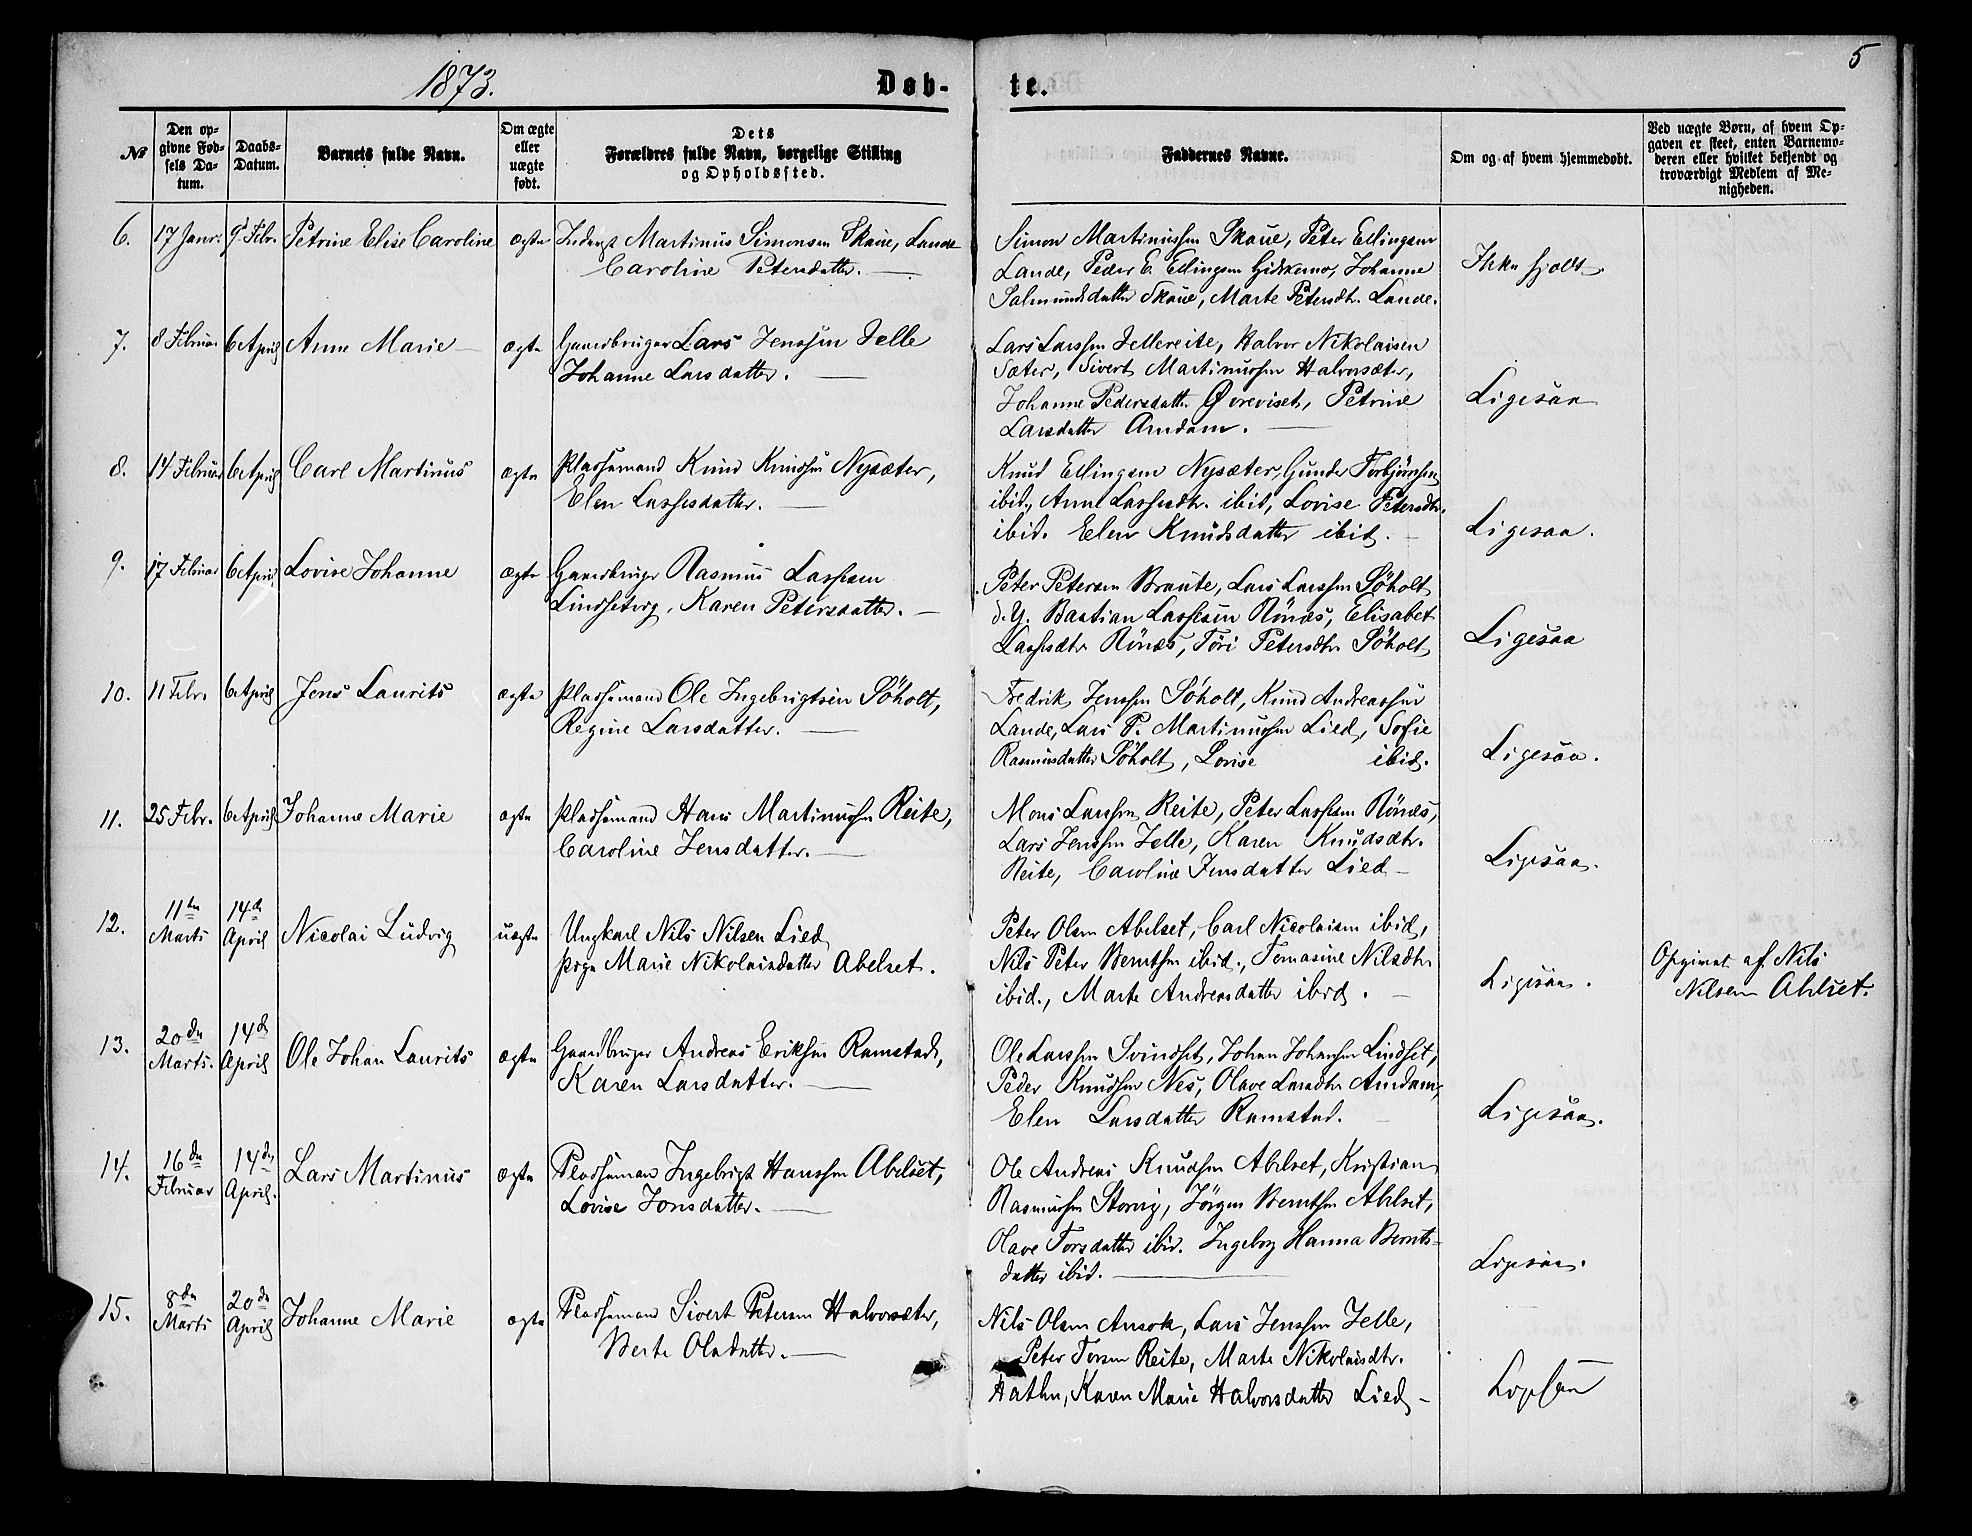 5
1873. Døb- te.
№
Den op-
givne Fød-
sels Da-
tum.
Daabs-
Datum.
Barnets fulde Navn.
Om ægte
eller
uægte
født.
Dets
Forældres fulde Navn, borgelige Stilling
og Opholdssted.
Faddernes Navne.
Om og af hvem hjemmedøbt.
Ved uægte Børn, af hvem Op-
gaven er skeet, enten Barnemo-
deren eller hvilket bekjendt og
troværdigt Medlem af Me-
nigheden.
6. 17 Janr. 9d Febr. Petrine Elise Caroline ægte Martinus Simonsen Skaue, Lande
Caroline Petersdatter.
Simon Martinussen Skaue, Peter Ellingsen
Lande, Peder E. Ellingsen Johanne
Salmundsdatter Skaue, Marte Petersdtr. Lande.
Ikke hjdbt.
7. 8 Februar 6 April Anne Marie ægte Gaardbruger Lars Jenssen Jelle
Johanne Larsdatter.
Lars Larssen Jellereite, Halvor Nikolaisen
Sæter, Sivert Martinussen Halvorsæter,
Johanne Pedersdatter Øvreviset, Petrine
Larsdatter Amdam.
Ligesaa
8. 14 Februar 6 April Carl Martinus ægte Pladsemand Knud Knudsen Nysæter,
Elen Lassesdatter.
Knud Ellingsen Nysæter, Gunder Torbjørnsen
ibid., Anne Lassesdtr. ibid, Lovise Petersdtr.
ibid. Elen Knudsdatter ibid.
Ligesaa.
9. 17 Februar 6 April Lovise Johanne ægte Gaardbruger Rasmus Lassesen
Lindseberg, Karen Petersdatter.
Peter Petersen Braute, Lars Larssen Søholt
d.y. Bastian Lassesen Rönæs, Elisabet
Lassesdtr. Rönæs, Töri Petersdtr. Søholt
Ligesaa
10. 11 Febr. 6 April Jens Laurits ægte Pladsemand Ole Ingebrigtsen Søholt,
Regine Larsdatter.
Fredrik Jenssen Søholt, Knud Andreassen
Lande, Lars P. Martinussen Lied, Sofie
Rasmusdatter Søholt, Lovise ibid.
Ligesaa.
11. 25 Febr. 6 April Johanne Marie ægte Pladsemand Hans Martinussen Reite,
Caroline Jensdatter.
Mons Larssen Reite, Peter Lassesen Rönæs,
Lars Jenssen Jelle, Karen Knudsdtr.
Reite, Caroline Jensdatter Lied
Ligesaa.
12. 11te Marts 14de April Nicolai Ludvig uægte Ungkarl Nils Nilsen Lied
Pige Marie Nikolaisdatter Abelset.
Peter Olsen Abelset, Carl Nicolaisen ibid,
Nils Peter Berntsen ibid., Tomasine Nilsdtr.
ibid., Marte Andreasdatter ibid.
Ligesaa.
Opgivet af Nils
Nilsen Abelset.
13. 20de Marts. 14de April Ole Johan Laurits ægte Gaardbruger Andreas Eriksen Ramstad,
Karen Larsdatter.
Ole Larssen Svindset, Johan Johansen Lindset,
Peder Knudsen Nes, Olave Larsdtr. Amdam,
Elen Larsdatter Ramstad.
Ligesaa.
14. 16de Februar 14de April. Lars Martinus ægte Pladsemand Ingebrigt Hanssen Abelset,
Lovise Jonsdatter.
Ole Andreas Knudsen Abelset, Kristian
Rasmussen Storvig, Jörgen Berntsen Abelset,
Olave Torsdatter ibid. Ingeborg Hanna Bernts-
datter ibid.
Ligesaa.
15. 8de Marts 20de April Johanne Marie ægte Pladsemand Sivert Petersen Halvorsæter,
Berte Olsdatter.
Nils Olsen Ansok, Lars Jenssen Jelle,
Peter Torsen Reite, Marte Nikolaisdtr.
Hathn, Karen Marie Halvorsdatter Lied
Ligesaa